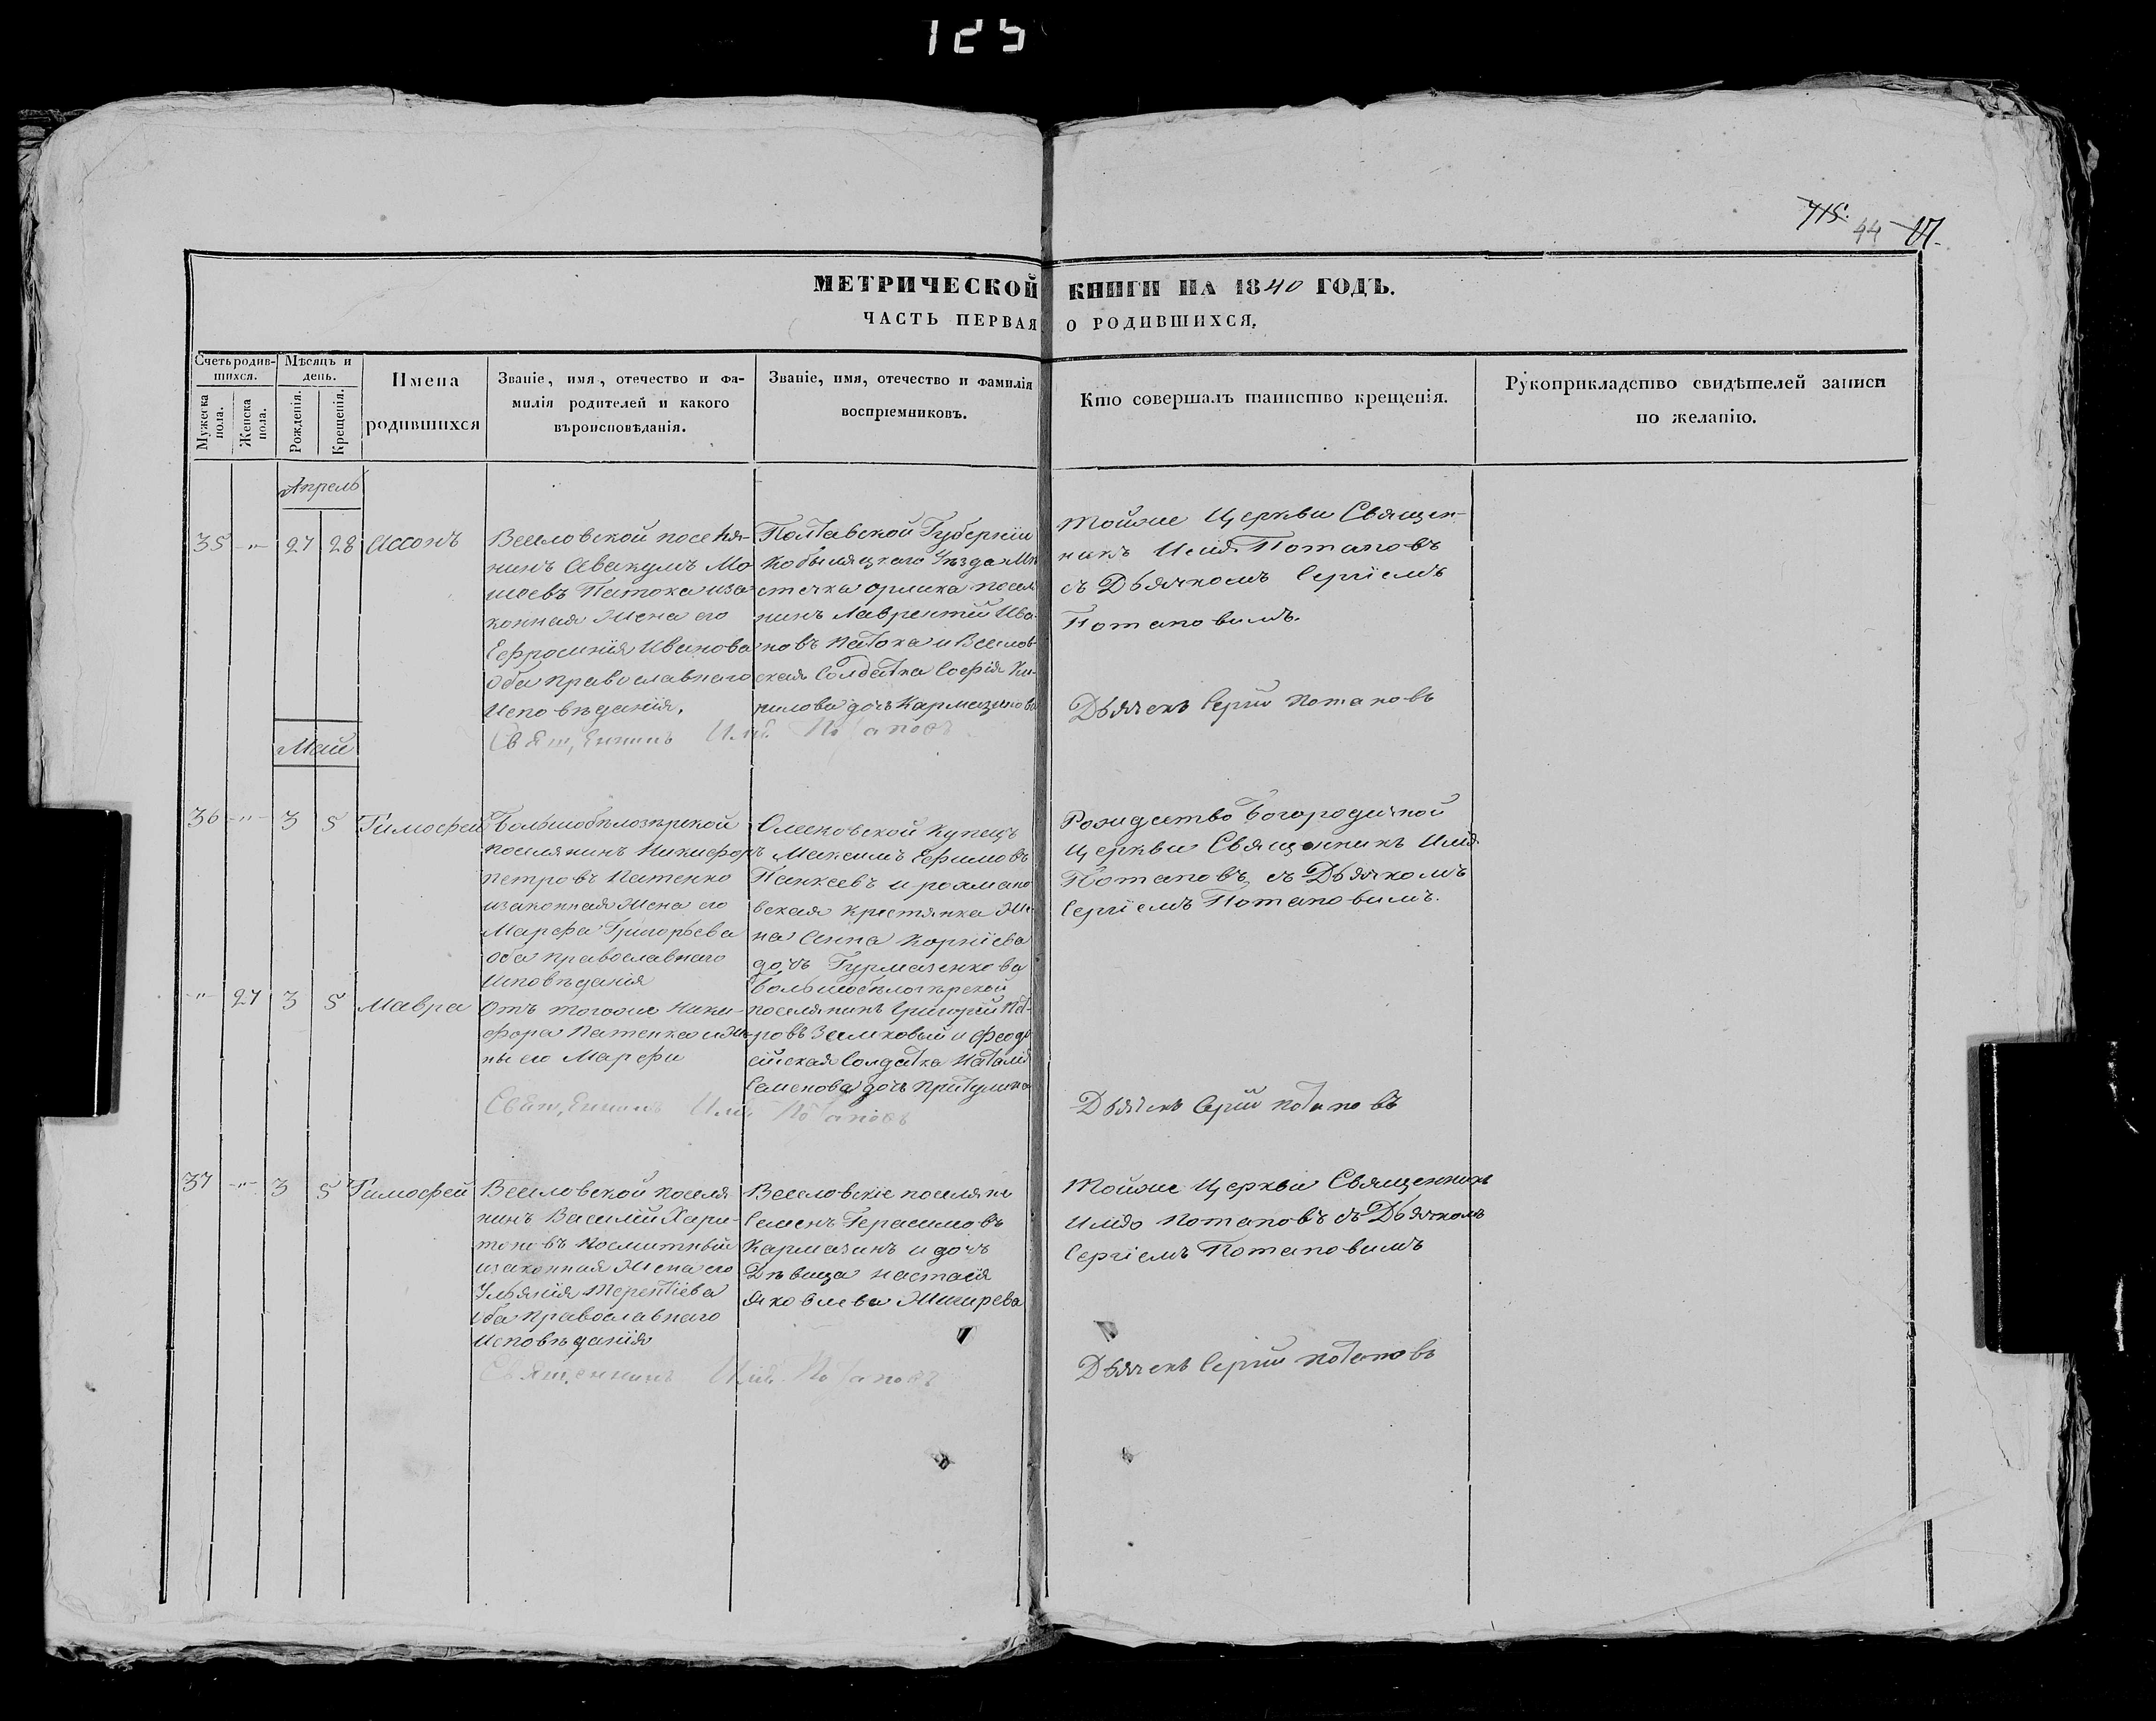 125
715. 44 67.
МЕТРИЧЕСКОЙ КНИГИ НА 1840 ГОДЪ.
ЧАСТЬ ПЕРВАЯ О РОДИВШИХСЯ.
Счетъ родив-
шихся.
Мужеска
пола.
Женска
пола.
Мѣсяцъ и
день.
Рожденія.
Крещенія.
Имена
родившихся
Званіе, имя, отечество и фа-
милія родителей и какого
вѣроисповѣданія.
Званіе, имя, отечество и фамилія
воспріемниковъ.
Кто совершалъ таинство крещенія.
Рукоприкладство свидѣтелей записи
по желанію.
Апрель
35 -"- 27 28 Иасонъ
Веселовской поселя-
нинъ Авакумъ Мо
исеевъ Патока иза
конная Жена его
Ефросинія Иванова
Оба православнаго
Исповѣданія.
Полтавской Губерніи
Кобыляцкаго Уѣзда Мѣ
стечка орлика посел
нинъ Лаврентій Ива
новъ Патока и Веселов
ская Солдатка Софія Ки-
рилова дочъ Кармазинова
тойже Церкви Священ-
никъ Илія Потаповъ
съ Дьячкомъ Сергіемъ
Потаповимъ.
Священникъ Илія Потаповъ
Дьячекъ Сергій Потаповъ
Май
36 -"- 3 5 Тимофей
Большобѣлозѣрской
поселянинъ Никифоръ
Петровъ Патенко
изаконная Жена его
Марефа Григорьева
оба православнаго
Исповѣданія
Олешковской Купецъ
Максимъ Ефимовъ
Панкеевъ и рохмано
вская крестянка Же-
на Анна Корніева
дочъ Гурмазенкова
Рождество Богородичной
Церкви Священникъ Илія
Потаповъ съ Дьячкомъ
Сергіемъ Потаповимъ.
-"- 27 3 5 Мавра
Отъ тогоже Ники-
фора Патенка и Же-
ны его Марефи
Большобѣлозѣрской
поселянинъ Григорій Пет-
ровъ и Феодо
сійская Солдатка Наталія
Семенова дочъ Притулина
Священникъ Илія Потаповъ
Дьячекъ Сергій Потаповъ
37 -"- 3 5 Тимофей
Веселовской поселя
нинъ Василій Хари-
тоновъ Космитный
изаконная Жена его
Ульянія Терентіева
оба православнаго
Исповѣданія
Веселовскіе поселяне
Семенъ Герасимовъ
Кармазинъ и дочъ
Дѣвица Настасія
Яковлева Жигирева
Тойже Церкви Священникъ
Илія Потаповъ съ Дьячкомъ
Сергіемъ Потаповимъ
Священникъ Илія Потаповъ
Дьячекъ Сергій Потаповъ